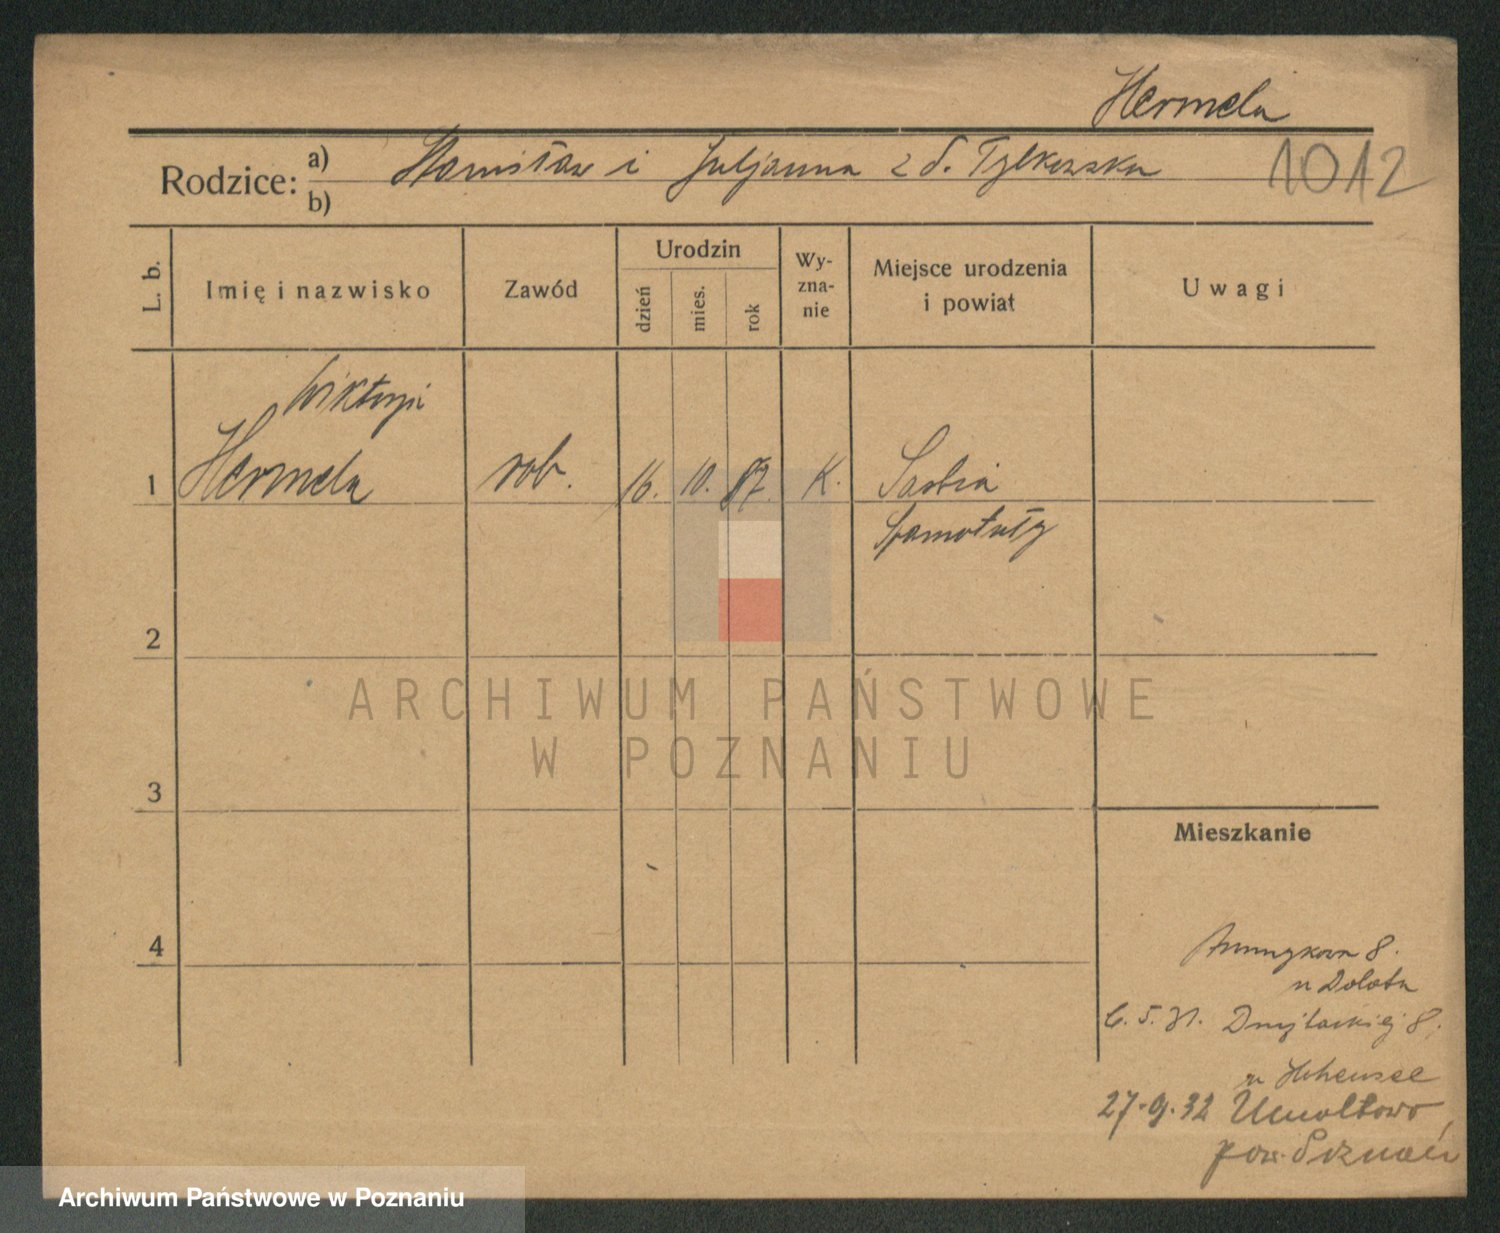 Hermela
Rodzice: a) Stanisław i Juljanna z d. Tylkowska 1012
b)
L. b. Imię i nazwisko Zawód Urodzin dzień mies. rok Wy-zna-nie Miejsce urodzenia i powiat Uwagi
Wiktorja
1 Hermela rob. 16. 10. 87. K. Sarbia
Szamotuły
2
ARCHIWUM PAŃSTWOWE
W POZNANIU
3
Mieszkanie
4
8.
u
6. 5. 31. 8.
u Hohensee
27-9.32 Umultowo
pow. Poznań
Archiwum Państwowe w Poznaniu